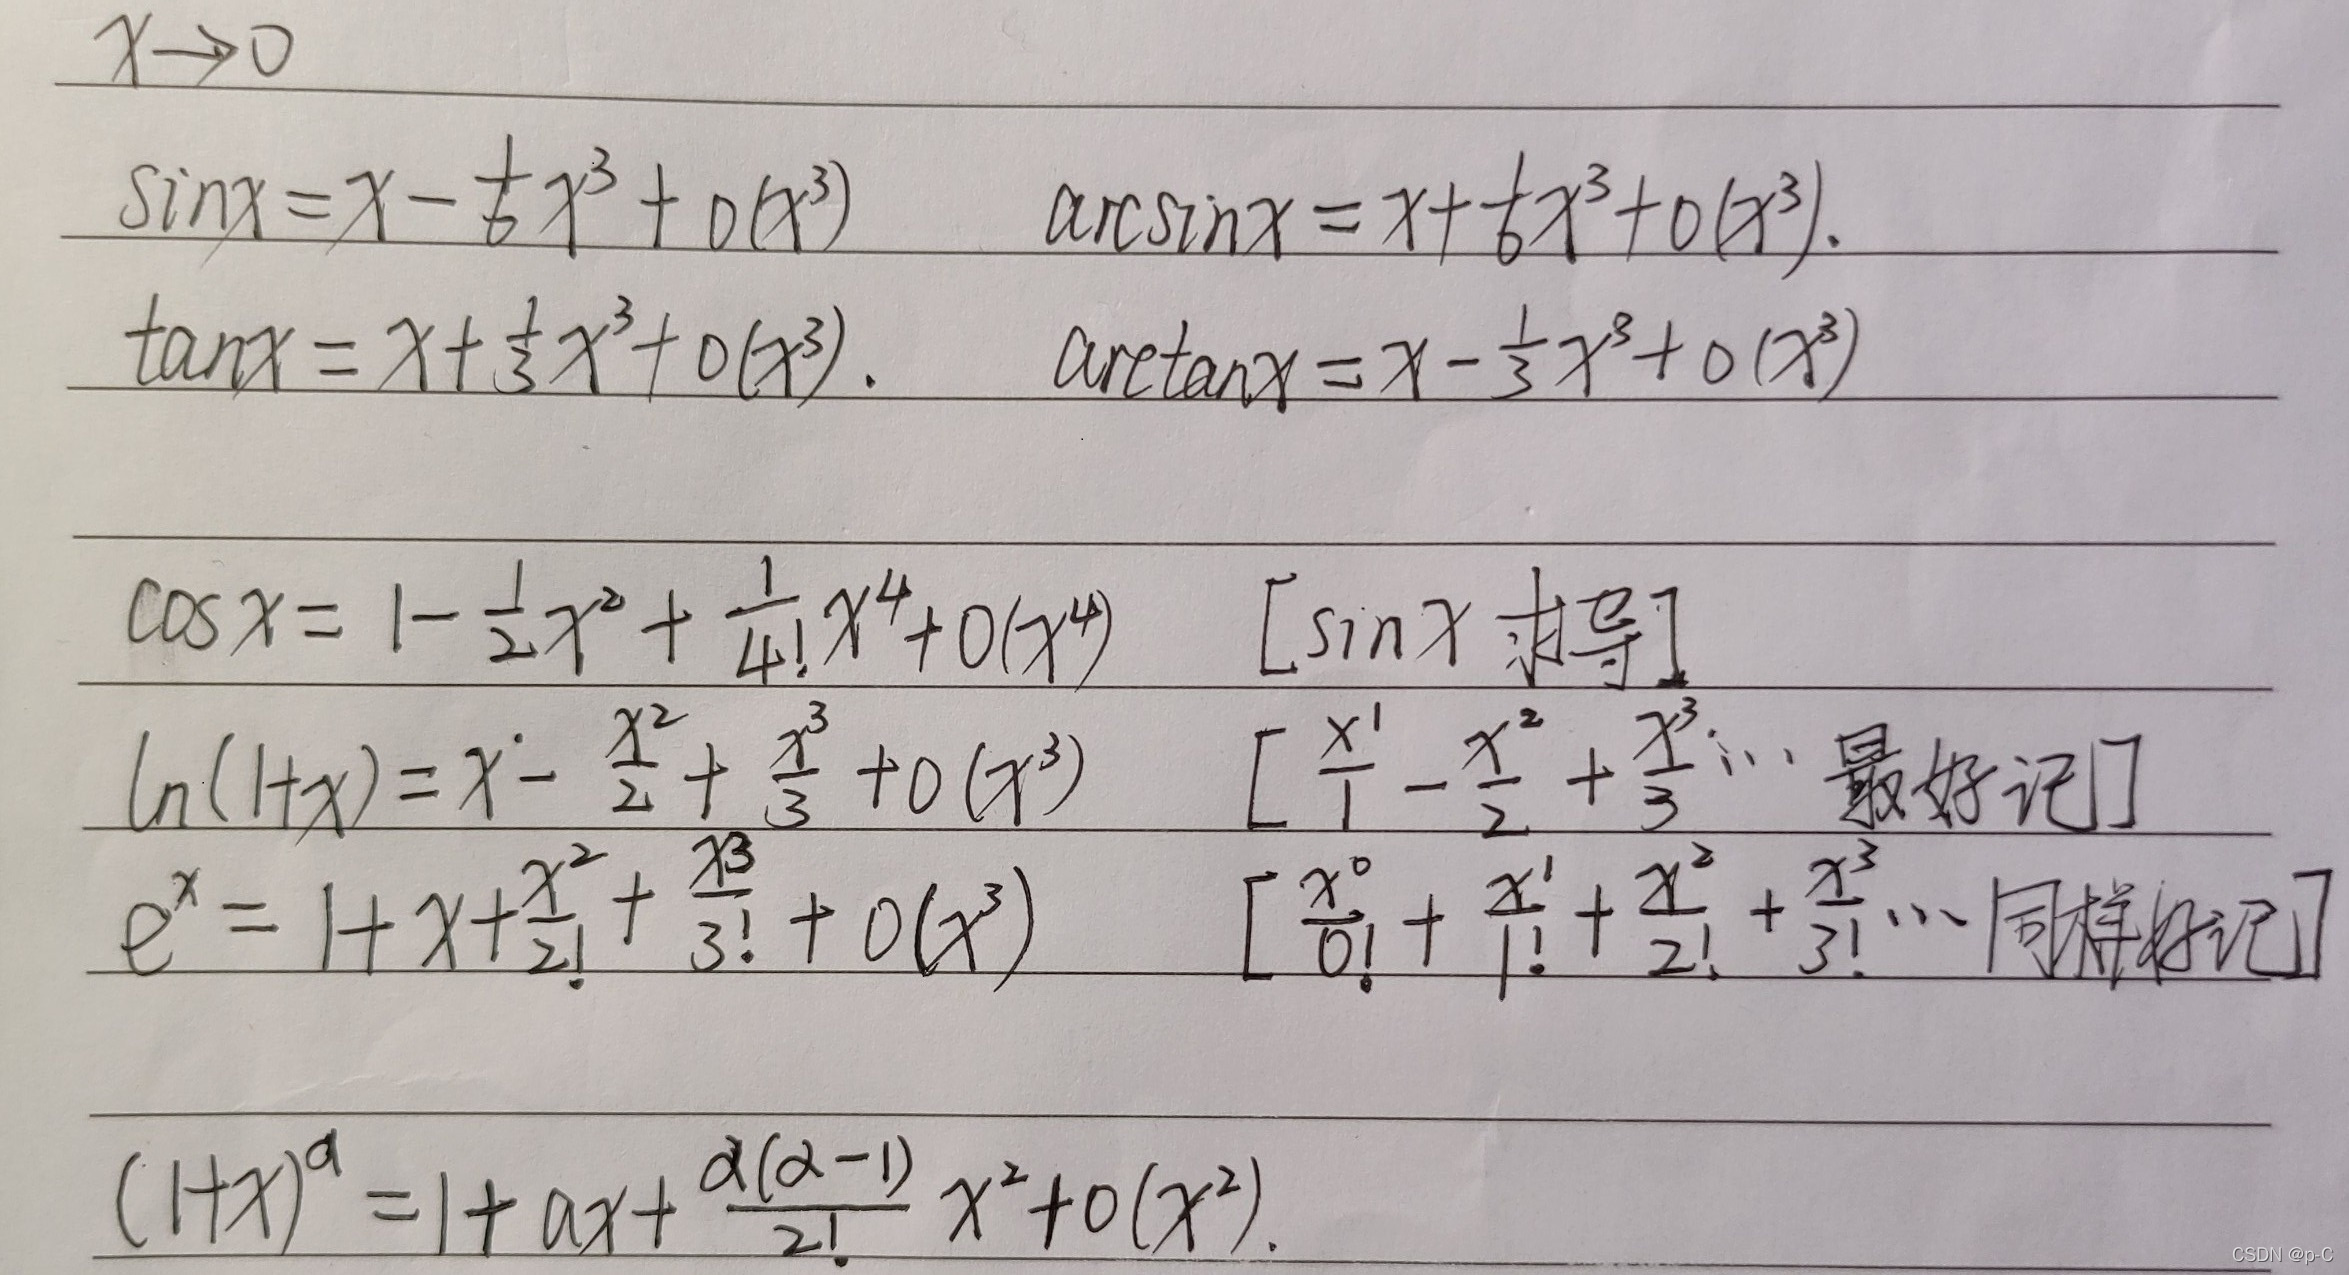 x→0
sinx = x - 1/6 x³ + o(x³) arcsinx = x + 1/6 x³ + o(x³).
tanx = x + 1/3 x³ + o(x³). arctanx = x - 1/3 x³ + o(x³)
cosx = 1 - 1/2 x² + 1/4! x⁴ + o(x⁴) [sinx 求导]
ln(1+x) = x - x²/2 + x³/3 + o(x³) [x¹/1 - x²/2 + x³/3 ... 最好记]
eˣ = 1 + x + x²/2! + x³/3! + o(x³) [x⁰/0! + x¹/1! + x²/2! + x³/3! ... 同样好记]
(1+x)ᵃ = 1 + ax + α(α-1)/2! x² + o(x²).
CSDN @p-C